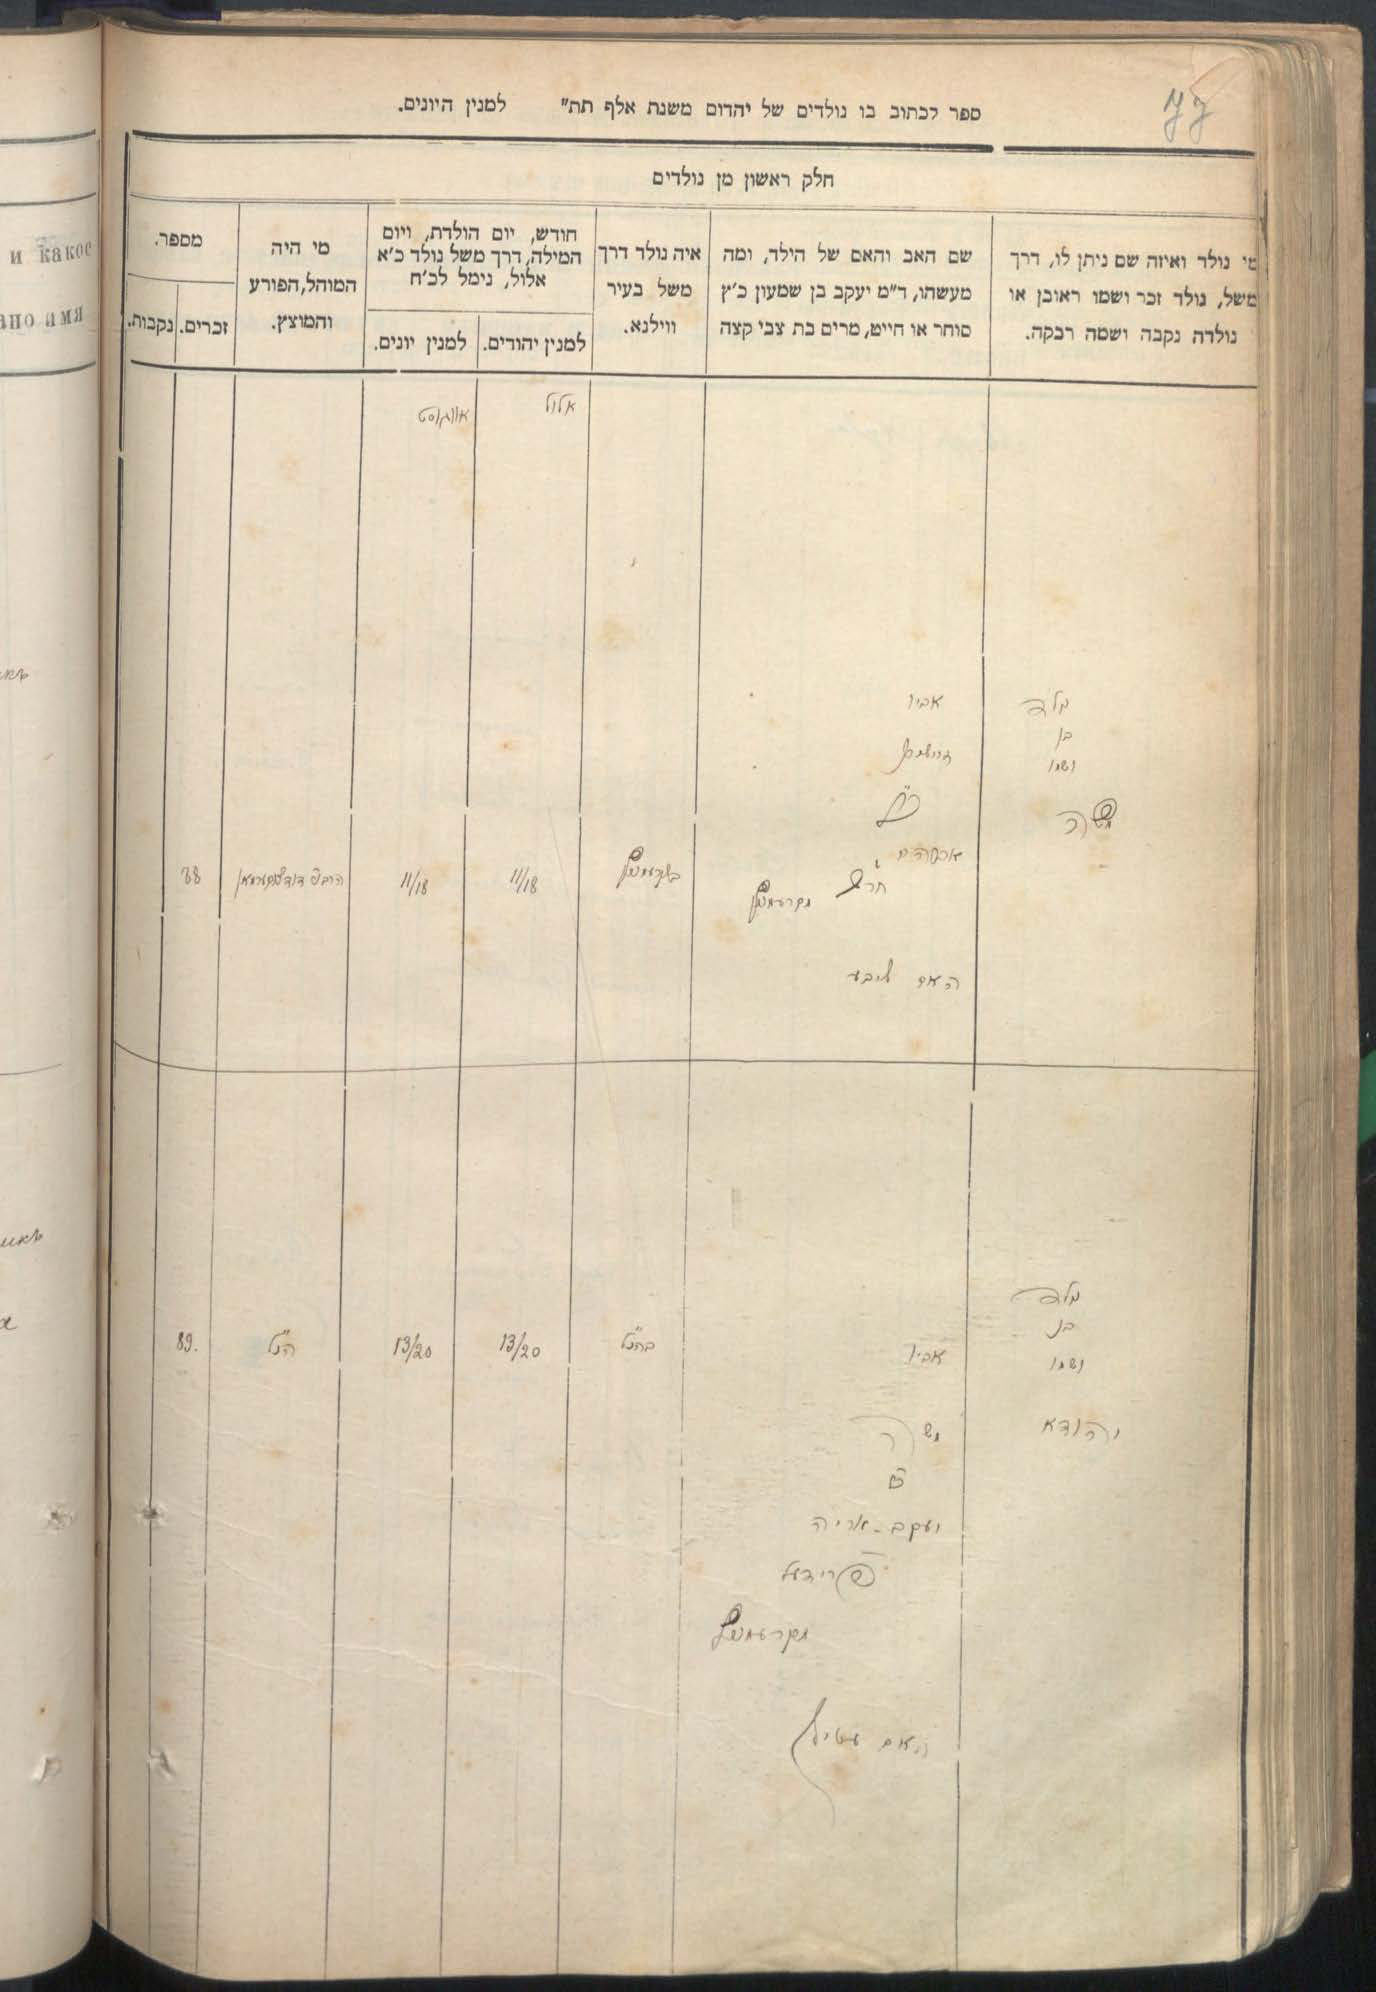 77
ספר לכתוב בו נולדים של יהדום משנת אלף תת" למנין היונים.
חלק ראשון מן נולדים
מי נולד ואיזה שם ניתן לו, דרך
משל, נולד זכר ושמו ראובן או
נולדה נקבה ושמה רבקה.
שם האב והאם של הילד, ומה
מעשהו, ד"מ יעקב בן שמעון כ"ץ
סוחר או חייט, מרים בת צבי קצה
איה נולד דרך
משל בעיר
ווילנא.
חודש, יום הולדת, ויום
המילה, דרך משל נולד כ'א
אלול, נימל לכ'ח
למנין יהודים.
למנין יונים.
מי היה
המוהל, הפורע
והמוצץ.
מספר.
זכרים.
נקבות.
אלול
אווגוסט
נולד
בן
ושמו
משה
אביו
אברהם
האם ליבע
11/18
11/18
88
נולד
בן
ושמו
יהודא
אביו
משה
יעקב-אריה
האם
כהנ"ל
13/20
13/20
הנ"ל
89.
и какое
ано имя